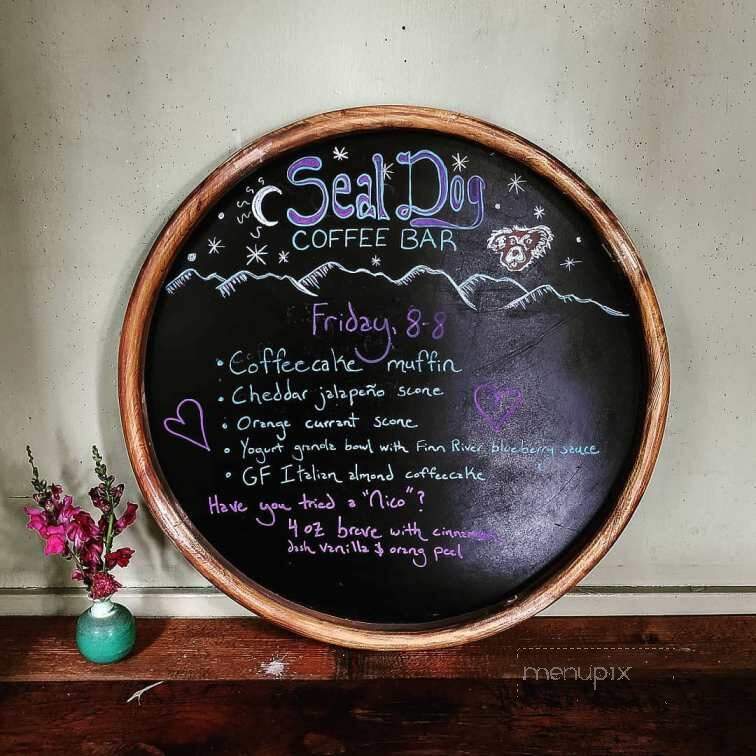 Seal Dog
COFFEE BAR
Friday, 8-8
• Coffeecake muffin
• Cheddar jalapeño scone
• Orange currant scone
• Yogurt granola bowl with Finn River blueberry sauce
• GF Italian almond coffeecake
Have you tried a "Nico"?
4 oz breve with cinnamon
dash vanilla & orang peel
menupix